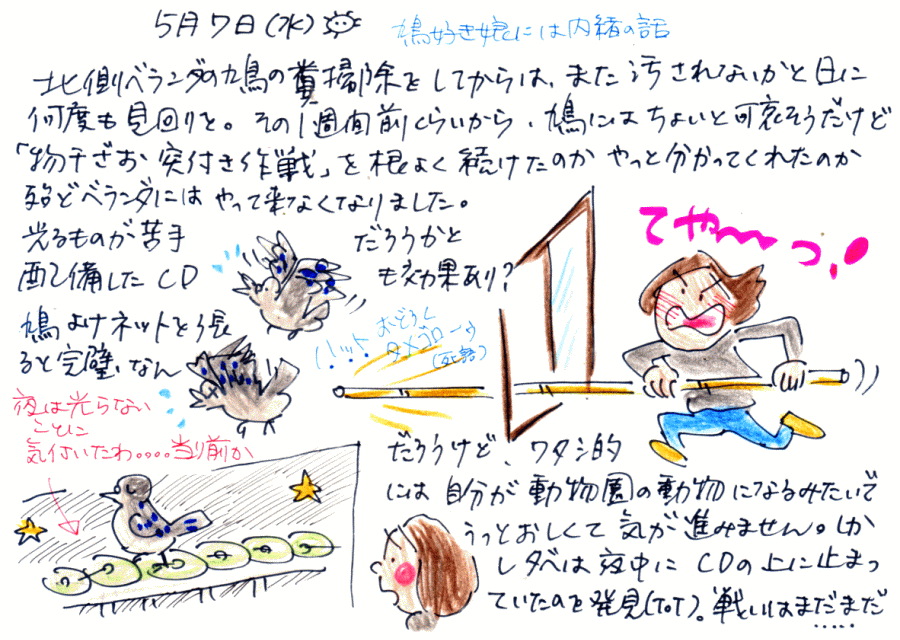 5月7日(水)
鳩好き娘には内緒の話
北側ベランダの鳩の糞掃除をしてからは、また汚されないかと日に
何度も見回りを。その1週間前くらいから、鳩にはちょいと可哀そうだけど
「物干ざお突付き作戦」を根よく続けたのかやっと分かってくれたのか
殆どベランダにはやって来なくなりました。
光るものが苦手だろうかと
配備したCDも効果あり?
鳩よけネットを張
ると完璧、なん
だろうけど、ワタシ的
には自分が動物園の動物になるみたいで
うっとおしくて気が進みません。しか
しダベは夜中にCDの上に止まっ
ていたのを発見(ToT)。戦いはまだまだ
.....
てや〜〜っ!
ハット
おどろく
タメゴロー
(死語)
夜は光らない
ことに
気付いたわ....当り前か